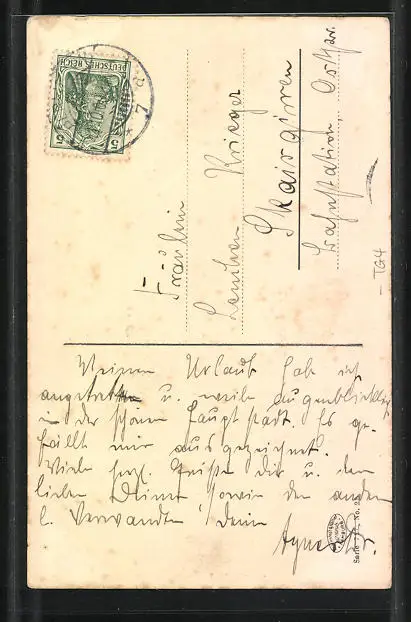 DEUTSCHES REICH
5 5
Fräulein
Lenchen Krieger
Skaisgirren
Bahnstation, Ostpr.
TG4
Meinen Urlaub hab ich
angetreten u. weile augenblicklich
in der schönen Hauptstadt. Es ge-
fällt mir ausgezeichnet.
Viele herzl. Grüße dir u. den
lieben Deinen sowie den andern
l. Verwandten deine
Agnes
Serie No. 2